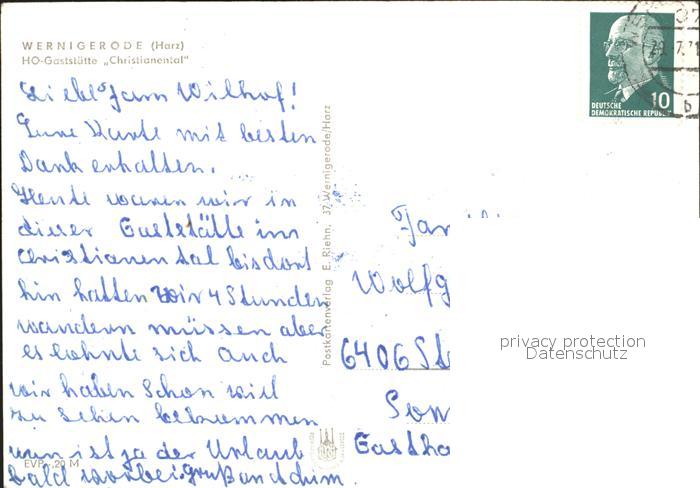 WERNIGERODE (Harz)
HO-Gaststätte „Christianental"
Liebe Fam Wilhof!
Eure Karte mit besten
Dank erhalten.
Heute waren wir in
dieser Gaststätte im
Christianental bis dort
hin hatten wir 4 Stunden
wandern müssen aber
es lohnte sich Auch
wir haben Schon viel
zu sehen bekommen
nun ist ja der Urlaub
bald vorbei. gruß an
EVP -,20 M
Postkartenverlag E. Riehn, 37 Wernigerode/Harz
DEUTSCHE
DEMOKRATISCHE REPUBLIK
10
Fam
Wolfg
6406 St
Son
Gastho
privacy protection
Datenschutz